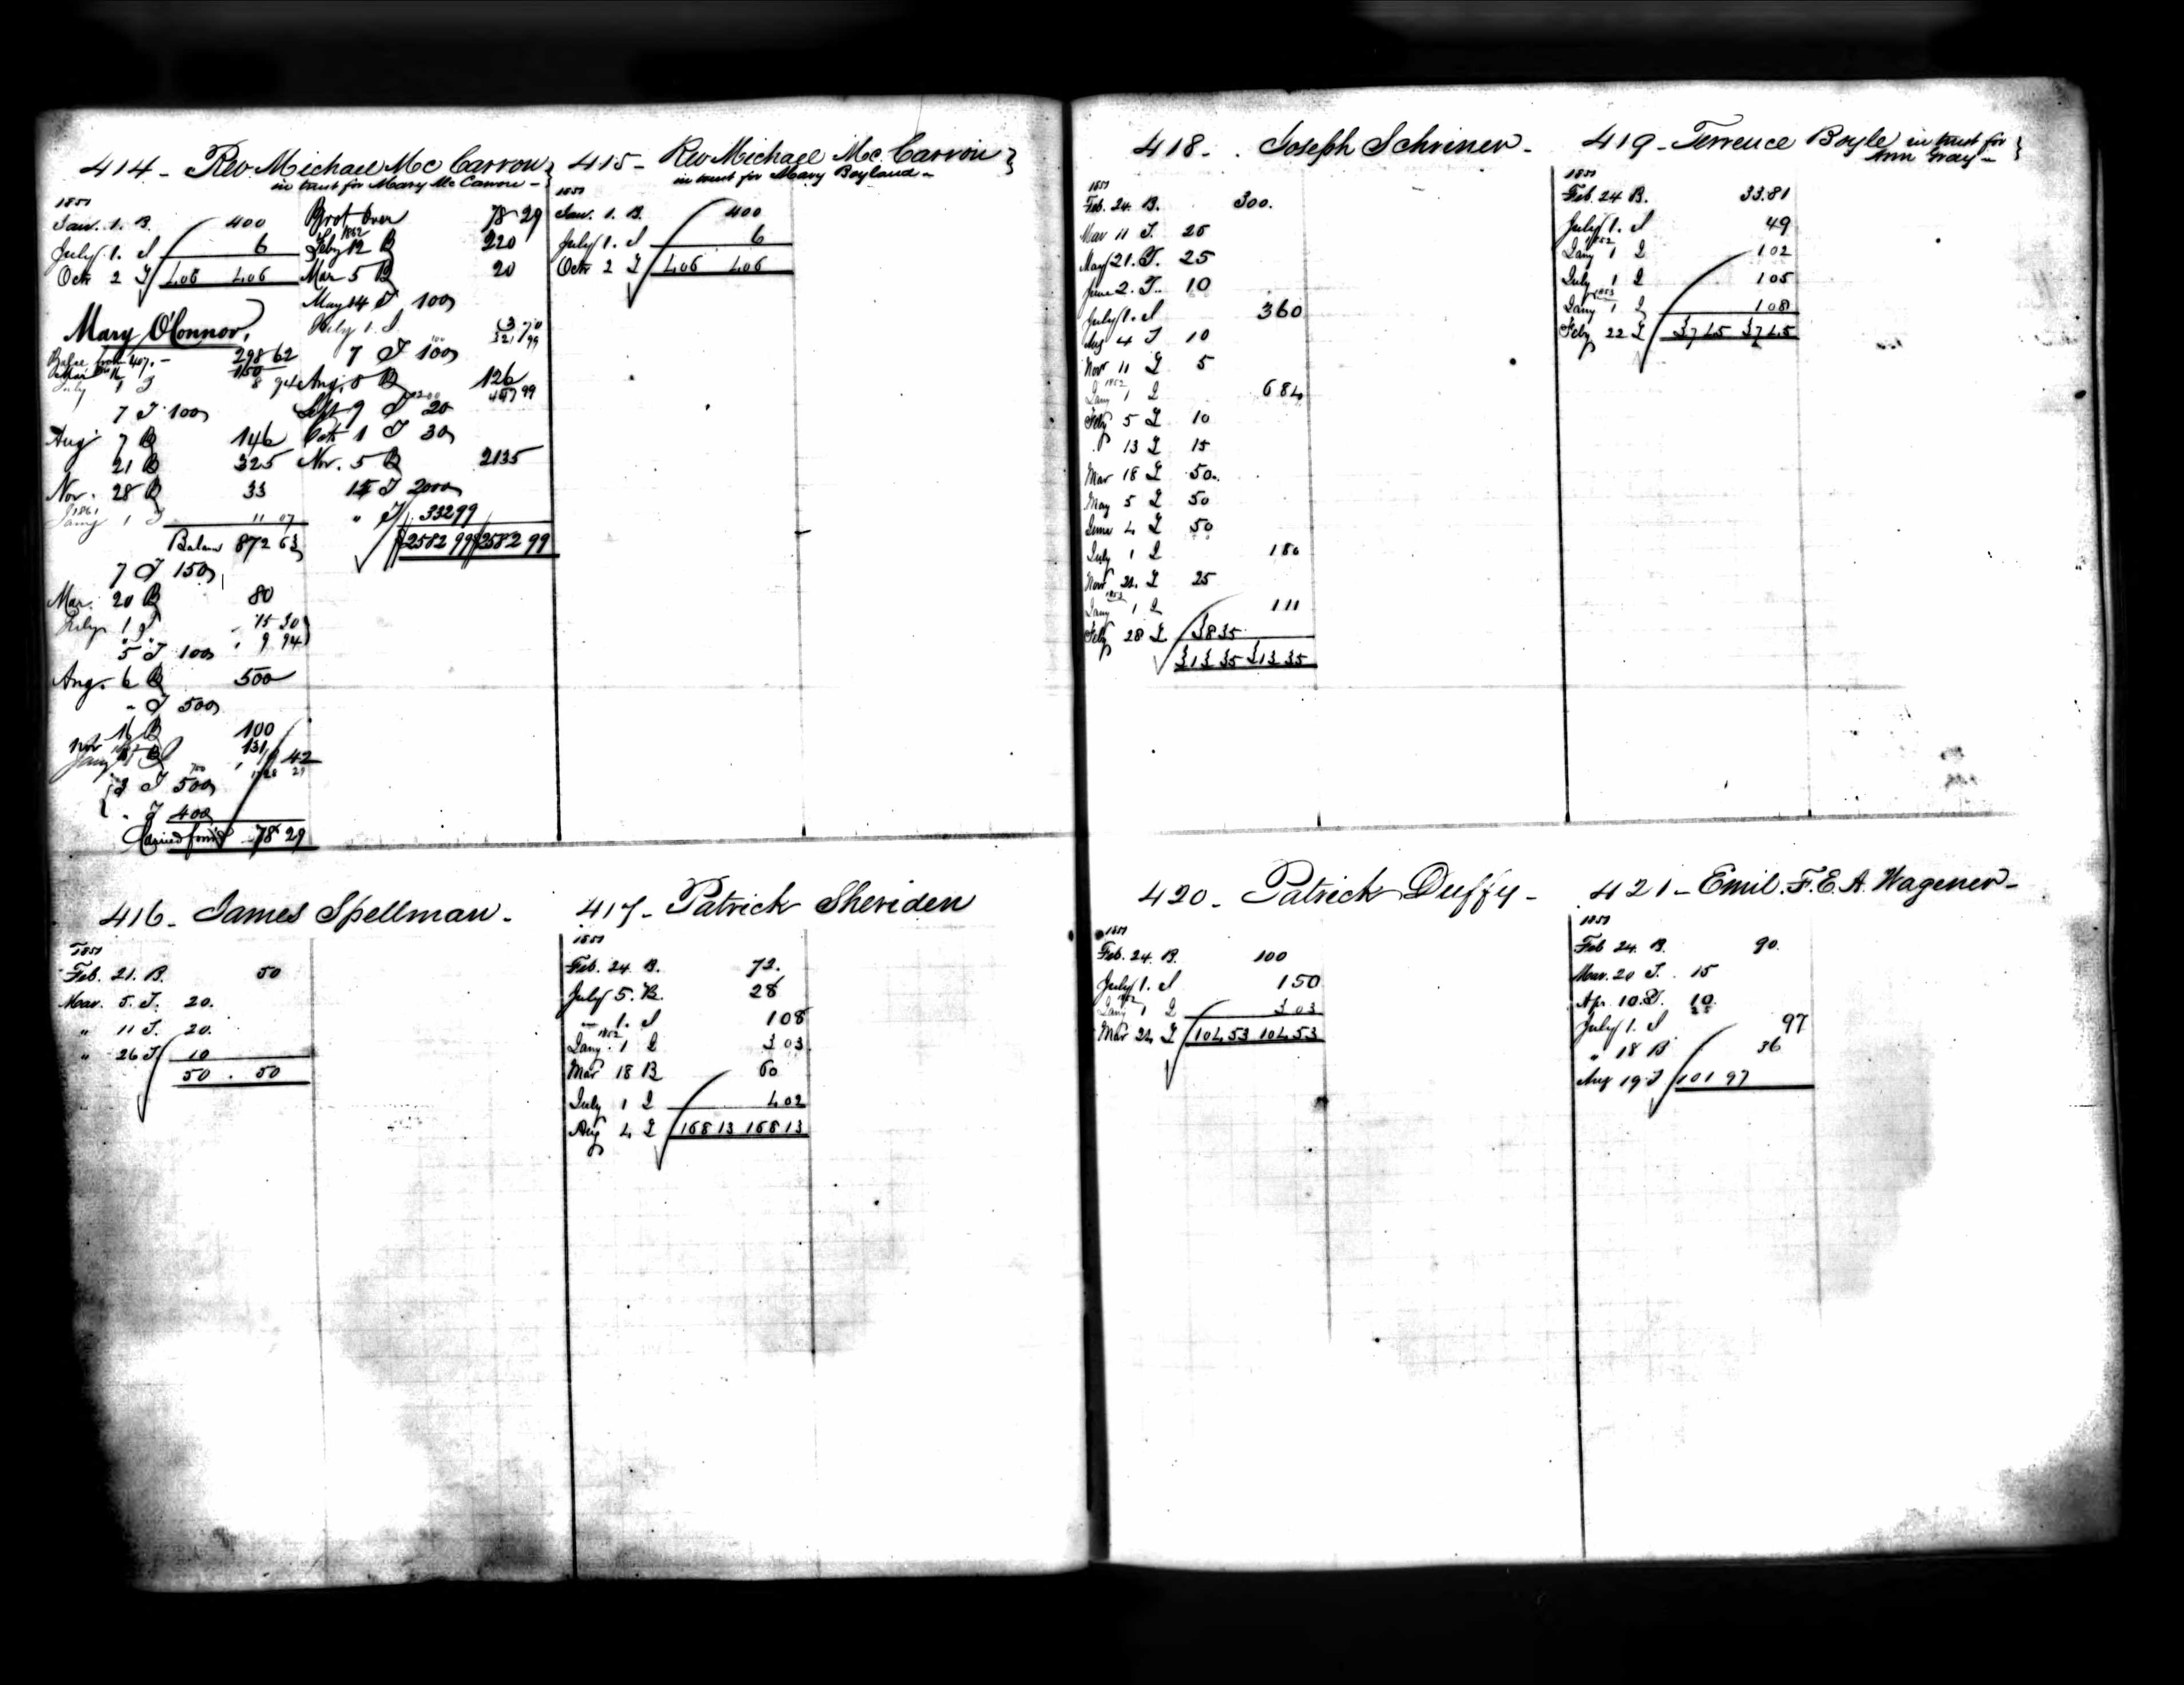 414 - Rev. Michael Mc Carron }
in trust for Mary Mc Carron -
1851
Jan. 1. B. 400
July 1. I 6
Octr 2 T 406 406
Mary O'Connor,
298 62
150
July 1 I 8 94
7 T 100
Aug 7 B 146
21 B 325
Nov. 28 B 33
1861
Jany 1 I 11 07
Balan 872 63
7 T 150
Mar. 20 B 80
July 1 I 15 30
" " 9 94
5 T 100
Aug. 6 B 500
" T 500
16 B 100
131
Jany 42
2 T 500
" T 400
Carried forw'd 78 29
Brot Over 78 29
1862
Feby 12 B 220
Mar 5 B 20
May 14 T 100
July 1. I 3 70
321 99
7 T 100
Aug. 8 B 126
Sept 9 T 20
Octr 1 T 30
Nov. 5 B 2135
15 T 2000
" T 332 99
2582 99 2582 99
415 - Rev Michael Mc. Carron }
in trust for Mary Boyland -
1851
Jan. 1. B. 400
July 1. I 6
Octr 2 T 406 406
416 - James Spellman -
1851
Feb. 21. B. 50
Mar. 5. T. 20.
" 11 T. 20.
" 26 T 10
50 . 50
417 - Patrick Sheriden
1851
Feb. 24 B. 72.
July 5. B. 28
" 1. I 108
1852
Jany 1 I 3 03
Mar 18 B 60
July 1 I 4 02
Aug 4 T 168 13 168 13
418 - Joseph Schriner -
1851
Feb. 24. B. 300.
Mar 11 T. 25
May 21. T. 25
June 2. T. 10
July 1. I 3 60
Aug 4 T 10
Nov 11 T 5
1852
Jany 1 I 6 84
Feby 5 T 10
" 13 T 15
Mar 18 T 50
May 5 T 50
June 4 T 50
July 1 I 1 80
Nov 24 T 25
1853
Jany 1 I 1 11
Feby 28 T 38 35
313 35 313 35
419 - Terrence Boyle in trust for }
Ann Gray -
1851
Feb. 24 B. 33.81
July 1. I 49
1852
Jany 1 I 1 02
July 1 I 1 05
1853
Jany 1 I 1 08
Feby 22 T 37 45 37 45
420 - Patrick Duffy -
1851
Feb. 24. B. 100
July 1. I 1 50
1852
Jany 1 I 3 03
Mar 24 T 104 53 104 53
421 - Emil. F. E. A. Wagener -
1851
Feb 24. B. 90.
Mar. 20 T. 15
Apr. 10. T. 10.
July 1. I 97
" 18 B 36
Aug 19 T 101 97